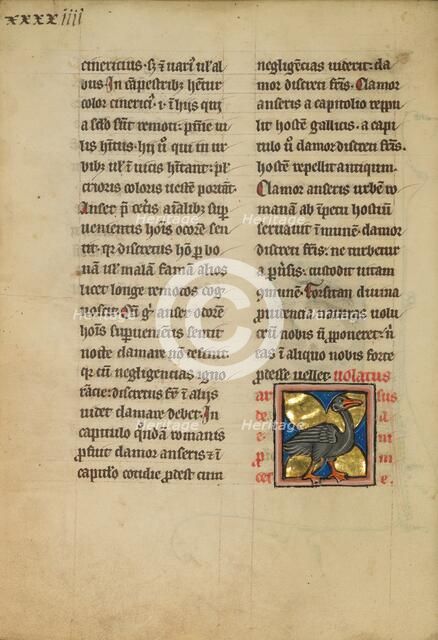 xxxxiiij
cinericius. s; ī uarı᷒ ul᷑ al
bus. In cāpestrib; hētur
color cineric᷒. i. ī hijs qui
a sclo sūt remoti: pnīe ui
lis hītus. hij u͛o qui in ur
bib; ul᷑ ī uicis hītant:
clarioris coloris ueste portāt.
Anser p̄ cet͛is aīalib; sup
uenientis hoīs odorē sen
tit. qr discretus hō p bo
nā ul᷑ malā famā alios
licet longe remotos cog
noscit. Cū g͛ anser odorē
hoīs sup ueniētis sentit
nocte clamare nō desinit.
qr cū negligencias igno
rācie: discretus fr̄ ī alijs
uidet clamare debet. In
capitolio quōdā romanis
pfuit clamor anseris: et ī
capitl̓o cotidie pdest cum
negligēcias uiderit: cla
mor discreti fr̄is. Clamor
anseris a capitolio reppu
lit hostē gallicis. a capi
tulo u͛o clamor discreti fr̄is.
hostē repellit antiquum.
Clamor anseris urbem ro
manā ab īpetu hostiū
seruauit: ī mūnē. clamor
discreti fr̄is: ne turbetur
a puersis. custodit uitam
cōmunē. Forsitan diuina
puidencia naturas uolu
crū nobis nō pponeret: nisi
eas ī aliquo nobis forte
pdesse uellet. uolatus
© Heritage